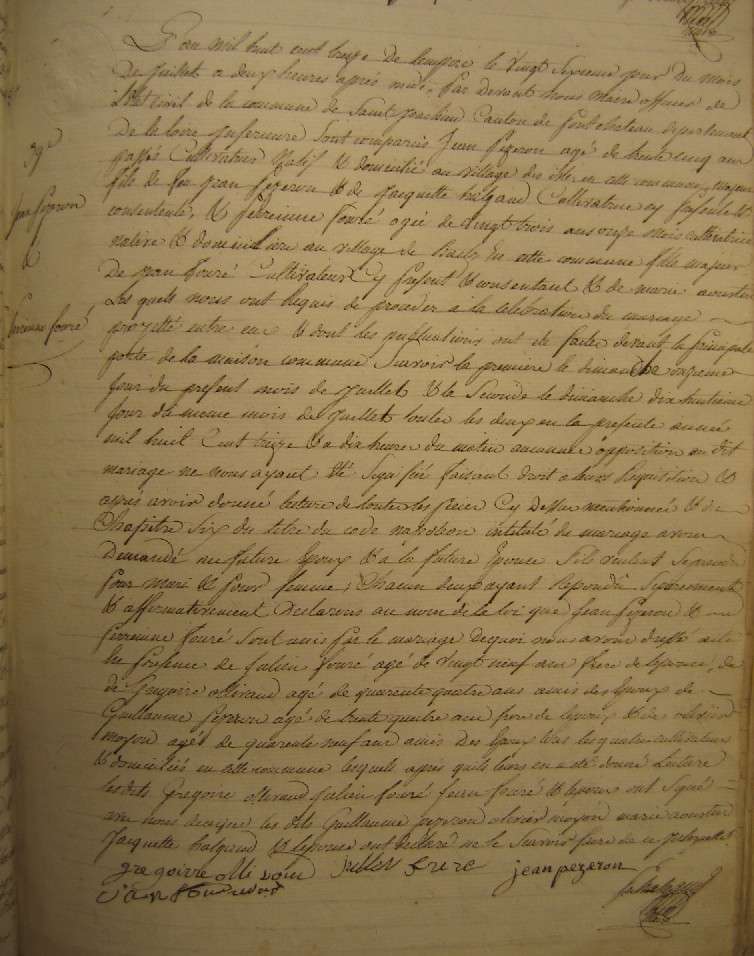 L'an mil huit cent treize De l'empire le Vingt Septieme jour du mois
De Juillet a deux heures après midi, Par Devant nous maire officier de
L'Etat civil de la commune de Saint Joachim Canton de Pontchateau departement
De la loire Inferieure Sont comparus Jean Pezeron agé de trente cinq ans
passés Cultivateur Natif & domicilié au village des en cette commune majeur
fils de feu Jean Pezeron & de Jacquette halgand Cultivatrice cy presente &
consentente, & Perrinne fouré agée de Vingt trois ans onze mois cultivatrice
native & domiciliée au village de En cette commune fille majeur
De jean fouré Cultivateur Cy present & consentant & de marie aoustin
Les quels nous ont Requis de proceder à la celebration du mariage
projetté entre eux & dont les publications ont été faites devant la principale
porte de la maison commune Savoir la premiere le dimanche onzieme
jour du present mois de Juillet & la Seconde le dimanche dix huitieme
jour du meme mois de Juillet toutes les deux en la presente année
mil huit Cent treize & a dix heures du matin aucunne opposition au dit
mariage ne nous ayant été Signifiée faisant droit a leurs Requisition &
après avoir donné lecture de toutes les pieces Cy Dessu mentionnée & du
Chapitre Six du titre du code napoleon intitulé du mariage avons
Demandé au future Epoux & à la future Epouse S'ils veulent Se prendre
pour mari & pour femme; Chacun deux ayant Repondu Separement
& affirmativement Declarons au nom de la loi que Jean Pezeron &
perrinne fouré Sont unis par le mariage Dequoi nous avons dressé acte
En presence de Julien fouré agé de Vingt neuf ans frere de lepouse, de
de Gregoire ollivaud agé de quarente quatre ans amis des Epoux de
Guillaume Pezeron agé de trente quatre ans frere de lepoux & de olivier
moyon agé de quarente neuf ans amis Des Epoux tous les quatre cultivateurs
& domiciliés en cette commune lesquels après quils leurs en a été donné Lecture
lesdits gregoire olivaud Julien fouré jean fouré & lepoux ont Signé
avec nous les dits Guillaume pezeron olivier moyon marie aoustin
Jacquette halgand & lepouse ont declaré ne le Savoir faire de ce
gregoirre ollivaud frere jean pezeron
39e
jean pezeron
&
Perrinne fouré